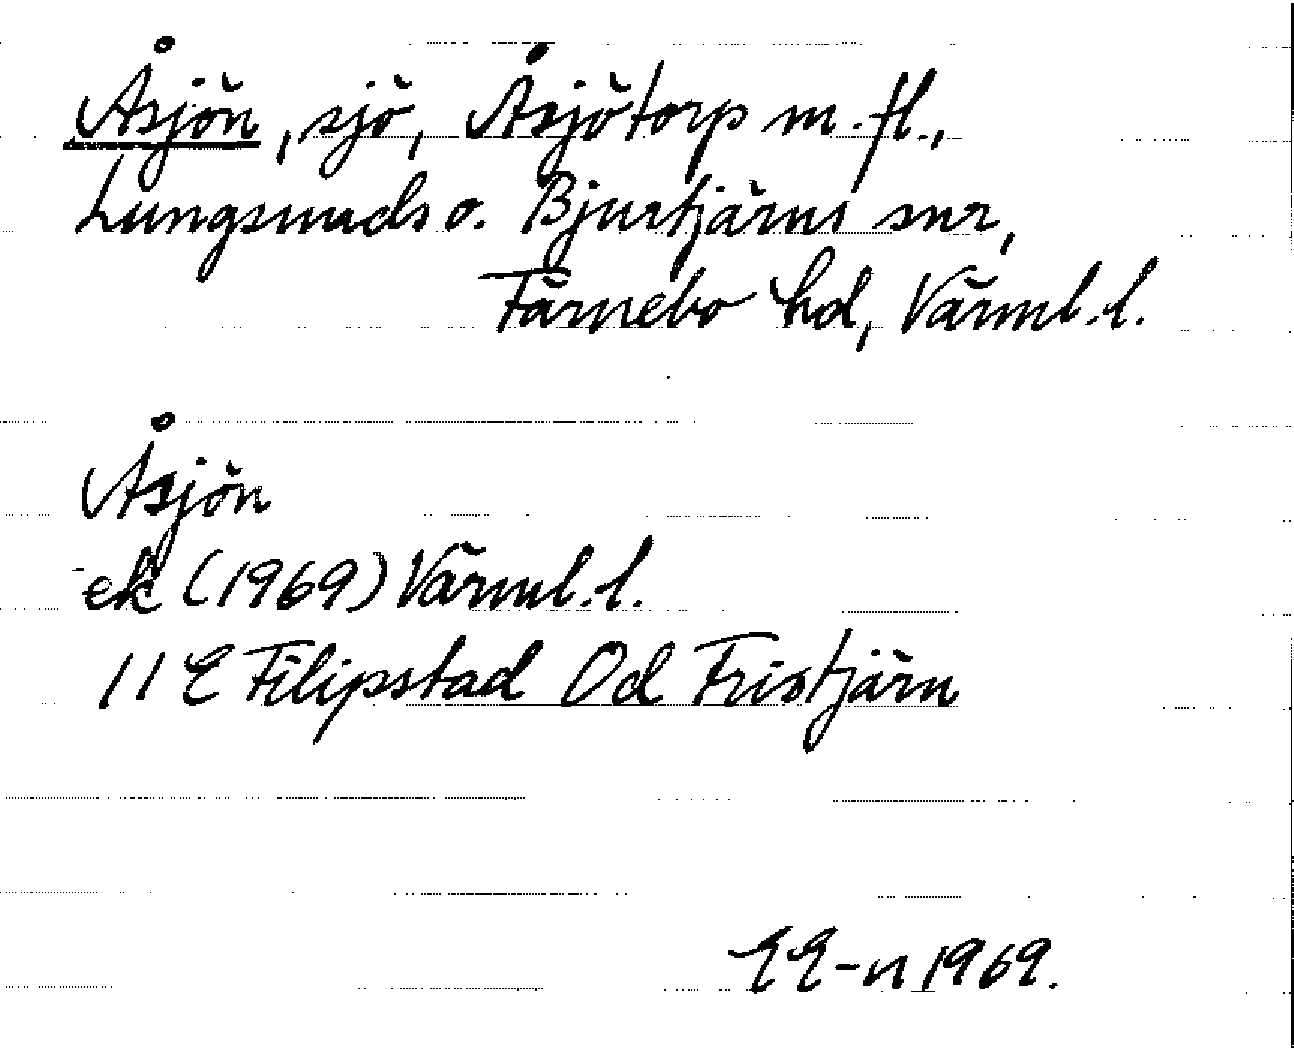 Åsjön, sjö, Åsjötorp m.fl.,
Lungsunds o. Bjurtjärns snr,
Färnebo hd, Värml.l.
Åsjön
ek (1969) Värml.l.
11 E Filipstad 0d Fristjärn
EE-n 1969.